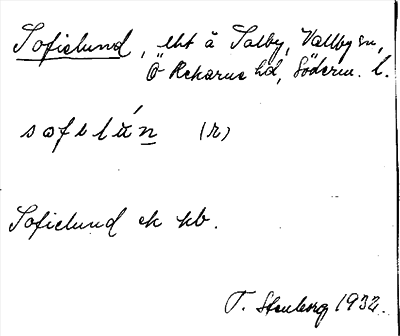 Sofielund, lht å Talby, Vallby sn,
Ö Rekarne hd, Söderm. l.
sofelún (r)
Sofielund ek kb.
T. Stenberg 1932.